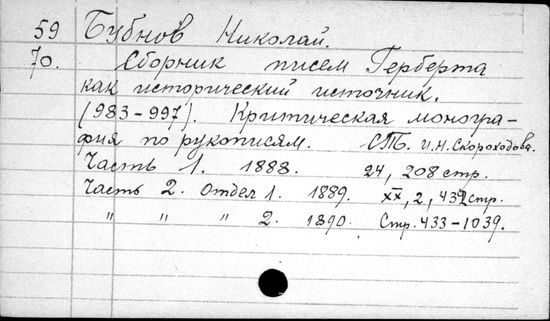 59 Бубнов Николай.
70. Сборник писем Герберта
как исторический источник.
(983-997). Критическая моногра-
фия по рукописям. СПб. И.Н. Скороходова.
Часть 1. 1888. 24, 208 стр.
Часть 2. Отдел 1. 1889. XX, 2, 432 стр.
" " " 2. 1890. Стр. 433-1039.